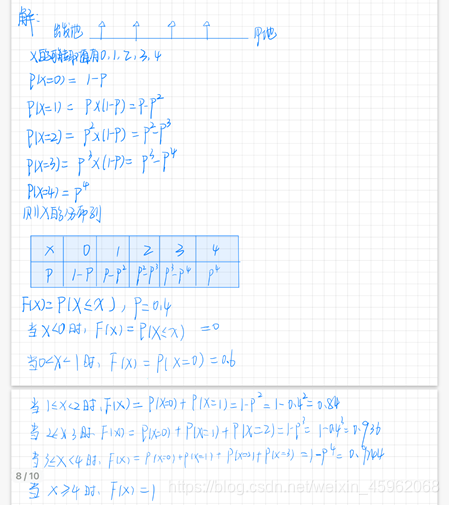 解: 出发地 甲地
X的取值可能有0, 1, 2, 3, 4
P(X=0) = 1-P
P(X=1) = P×(1-P)=P-P²
P(X=2) = P²×(1-P)=P²-P³
P(X=3) = P³×(1-P)= P³-P⁴
P(X=4) = P⁴
则X的分布列
X 0 1 2 3 4
P 1-P P-P² P²-P³ P³-P⁴ P⁴
F(X)=P(X≤x), P=0.4
当X<0时, F(X)=P(X≤x) =0
当0<X<1时, F(X)=P(X=0)=0.6
当1≤X<2时, F(X)=P(X=0)+P(X=1)=1-P²=1-0.4²=0.84
当2≤X<3时, F(X)=P(X=0)+P(X=1)+P(X=2)=1-P³=1-0.4³=0.936
当3≤X<4时, F(X)=P(X=0)+P(X=1)+P(X=2)+P(X=3)=1-P⁴=0.9744
8 / 10
当X≥4时, F(X)=1
https://blog.csdn.net/weixin_45962068